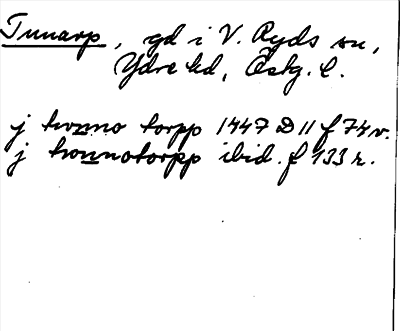 Tunarp, gd i V. Ryds sn,
Ydre hd, Östg. l.
j twnno torpp 1447 D 11 f 74 v.
j twnnotorpp ibid. f 133 r.